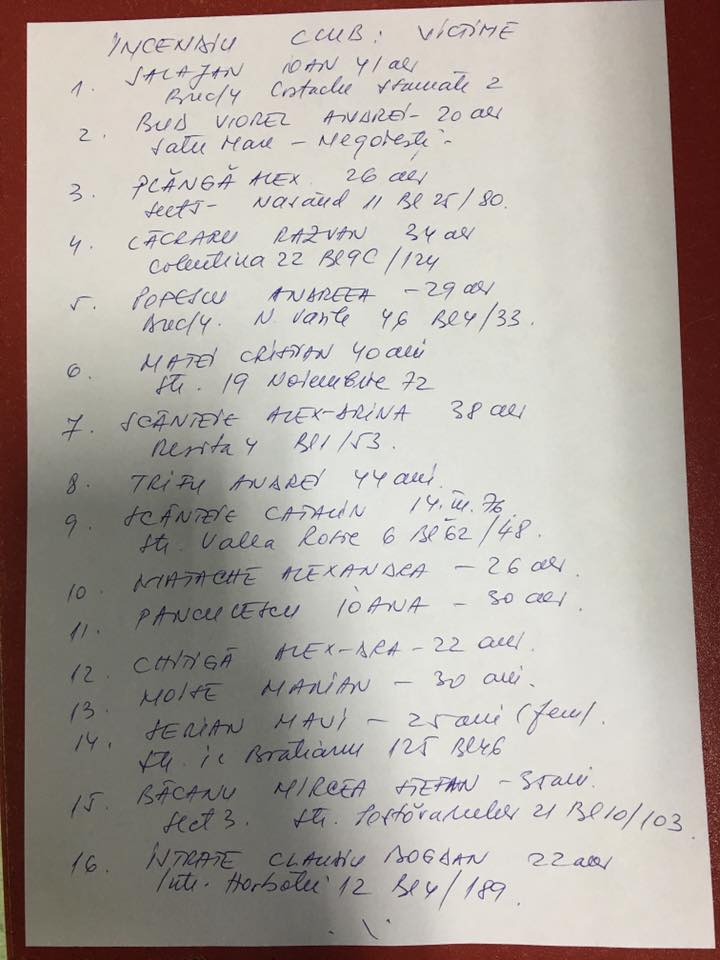 INCENDIU CLUB: VICTIME
1. SALAJAN IOAN 41 ani
Buc/4 Costache 2
2. BUD VIOREL ANDREI - 20 ani
Satu Mare - Negrești -
3. PLÂNGĂ ALEX. 26 ani
Sect 5 - Nasăud 11 Bl 25/80.
4. RAZVAN 34 ani
Colentina 22 Bl 9C/124
5. POPESCU ANDREEA - 29 ani
Buc/4. N. Vasile 46 Bl 4/33.
6. MATEI CRISTIAN 40 ani
Str. 19 Noiembrie 72
7. SCÂNTEIE ALEX-DRINA 38 ani
Resita 4 Bl 1/53.
8. TRIFU ANDREI 44 ani.
9. SCÂNTEIE CATALIN 14.III.76.
Str. Valea Rosie 6 Bl 62/48.
10. MATACHE ALEXANDRA - 26 ani.
11. IOANA - 30 ani.
12. CHITIGĂ ALEX-DRA - 22 ani.
13. MOISE MARIAN - 30 ani.
14. SERIAN MAVI - 25 ani (fem).
Str. ic Bratianu 125 Bl 46
15. BĂCANU MIRCEA STEFAN - 35 ani.
Sect 3. Str. 21 Bl 10/103
16. INTRATE CLAUDIU BOGDAN 22 ani
Intr. Horbotei 12 Bl 4/189.